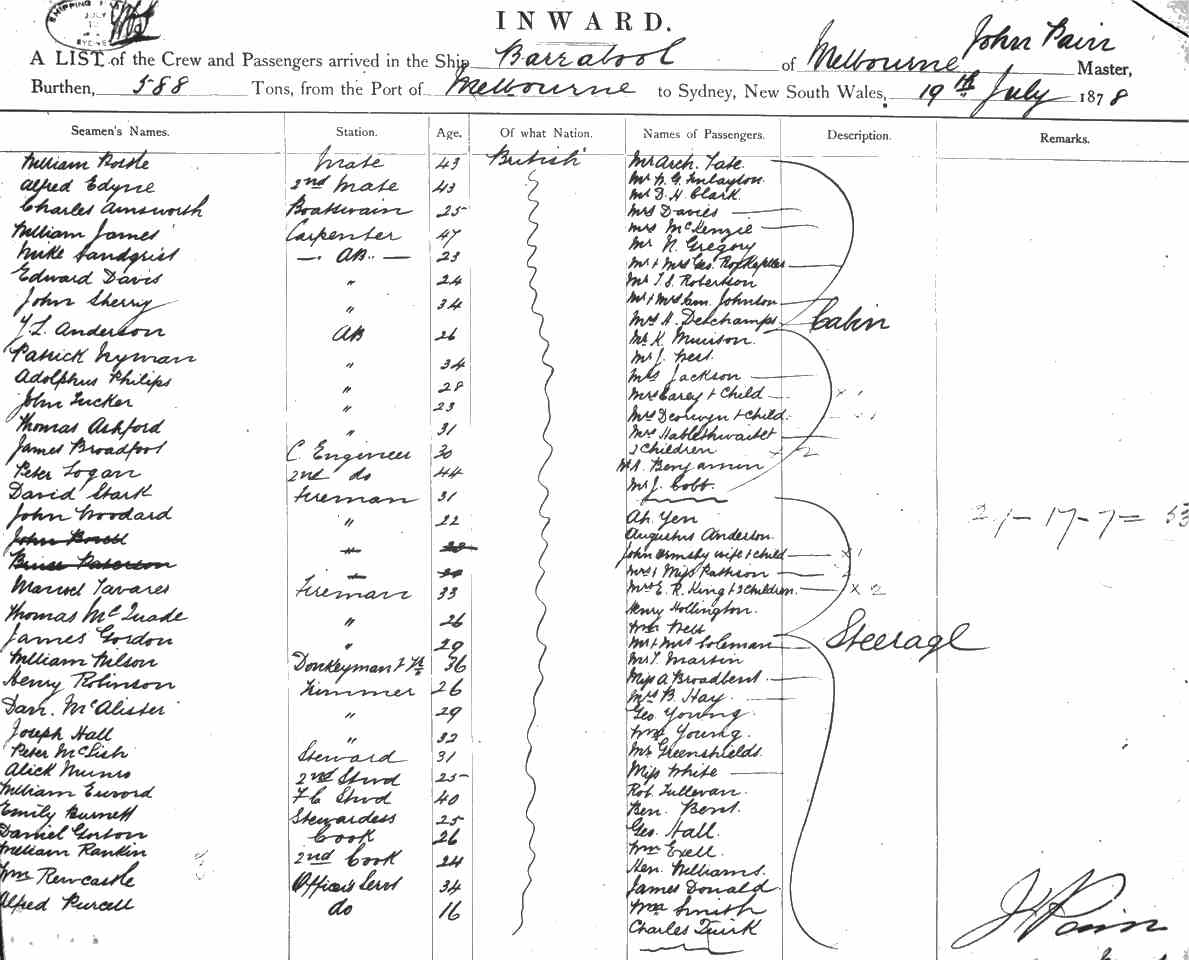 SHIPPING
JULY
SYDNEY
INWARD.
John Pain
A LIST of the Crew and Passengers arrived in the Ship Barrabool of Melbourne Master,
Burthen, 588 Tons, from the Port of Melbourne to Sydney, New South Wales, 19th July 1878
Seamen's Names. Station. Age. Of what Nation. Names of Passengers. Description. Remarks.
William Mate 43 British Mr Arch. Tate
Alfred Edyne 2nd Mate 43 Mr Finlayson
Charles Ainsworth Boatswain 25 Mr D. H. Clark
William James Carpenter 47 Mrs Davies
Mike Sandgrist AB 23 Mrs McKenzie
Edward Davis " 24 Mr N. Gregory
John Sherry " 34 Mr & Mrs Geo.
Mr J. S. Robertson
Mr & Mrs Sam. Johnson
Anderson AB 26 Mrs H. Deschamps Cabin
Patrick Nyman " 34 Mr K. Munson
Adolphus Philips " 28 Mr J. West
John Tucker " 23 Mrs Jackson
Thomas Ashford " 31 Mrs Carey & Child x 1
James Broadfoot C. Engineer 30 Mrs & Child
Peter Logan 2nd do 44 Mrs
2 Children x 2
Mr Benjamin
David Stark Fireman 31 Mr J. Cobb
John Woodard " 22 Ah Yen
John Augustus Anderson
Bruce Paterson John Ormsby wife & child x 1
Manuel Tavares Fireman 33 Mrs & Miss
Mrs E. R. King & 3 Children. x 2
21-17-7= 53
Thomas McQuade " 26 Henry Hollington
James Gordon " 29 Wm West
Mr & Mrs Coleman Steerage
William Nilson Donkeyman 36 Mr T. Martin
Henry Robinson Trimmer 26 Miss A Broadbent
Dan. McAlister " 29 Mrs B. Hay
Joseph Hall " 32 Geo Young
Wm Young
Peter McLish Steward 31 Mr Greenshields
Alick Munro 2nd Stwd 25 Miss White
William F C Stwd 40 Rob. Tullevan
Emily Burnett Stewardess 25 Ben. Bent
Daniel Gorton Cook 26 Geo. Hall
William Rankin 2nd Cook 24 Wm Exell
Hen. Williams
Wm Rewcastle Officers Servt 34 James Donald
Alfred Purcell do 16 Wm Smith
Charles Quirk
J Pain